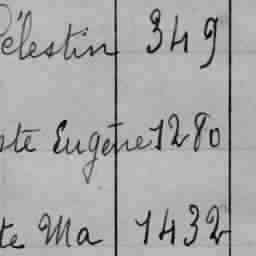 Célestin 349
ste Eugène 1280
te Ma 1432